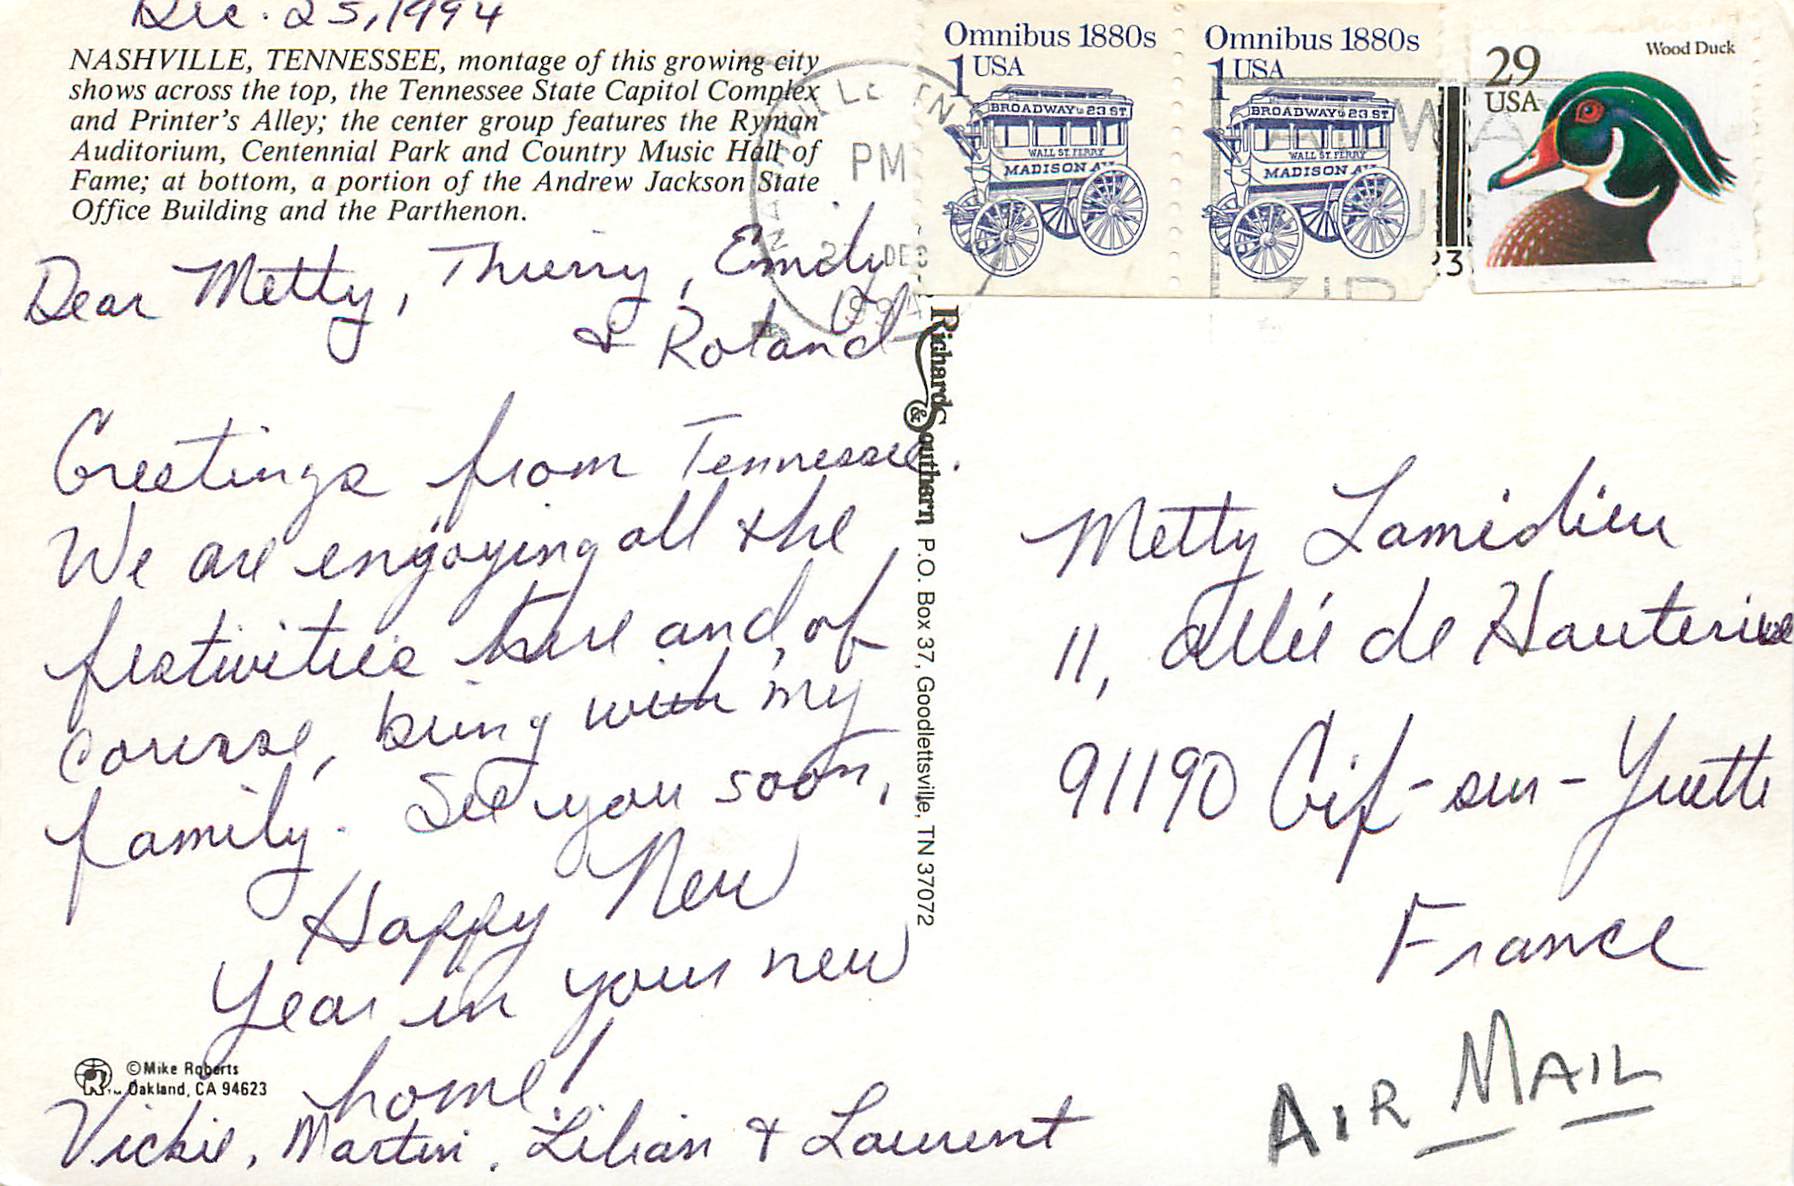 Dec. 25, 1994
NASHVILLE, TENNESSEE, montage of this growing city
shows across the top, the Tennessee State Capitol Complex
and Printer's Alley; the center group features the Ryman
Auditorium, Centennial Park and Country Music Hall of
Fame; at bottom, a portion of the Andrew Jackson State
Office Building and the Parthenon.
Dear Metty, Thierry, Emily
& Roland
Greetings from Tennessee.
We are enjoying all the
festivities here and, of
course, being with my
family. See you soon,
Happy New
Year in your new
home!
Vickie, Martin, Lilian & Laurent
©Mike Roberts
Oakland, CA 94623
Richards & Southern P.O. Box 37, Goodlettsville, TN 37072
NASHVILLE TN
PM
DEC
1994
Omnibus 1880s
1 USA
BROADWAY & 23 ST.
WALL ST. FERRY
MADISON AV
Omnibus 1880s
1 USA
BROADWAY & 23 ST.
WALL ST. FERRY
MADISON AV
23
ZIP
29
USA
Wood Duck
Metty Lamidieu
11, allée de Hauterive
91190 Gif-sur-Yvette
France
AIR MAIL